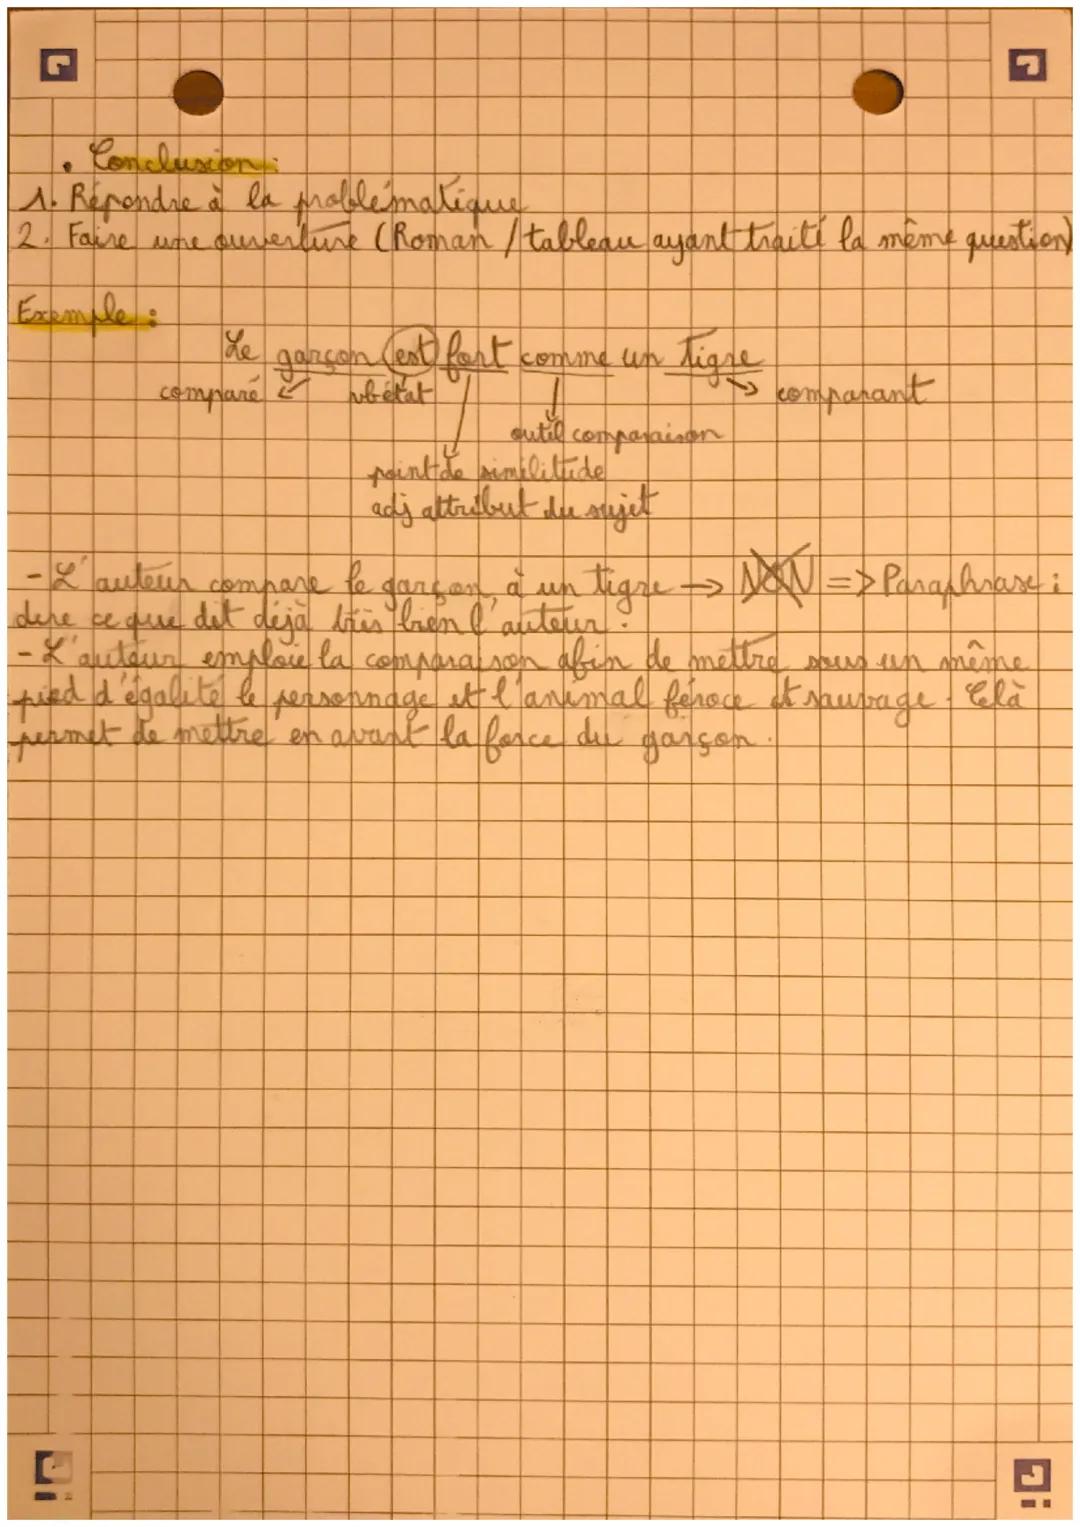 • Conclusion :
1. Répondre à la problématique
2. Faire une ouverture (Roman / tableau ayant traité la même question)
Exemple :
Le garçon est fort comme un tigre
comparé vb état comparant
outil comparaison
point de similitude
adj attribut du sujet
- L'auteur compare le garçon, à un tigre → NON => Paraphrase :
dire ce que dit déjà très bien l'auteur.
- L'auteur emploie la comparaison afin de mettre sous un même
pied d'égalité le personnage et l'animal féroce et sauvage. Celà
permet de mettre en avant la force du garçon.